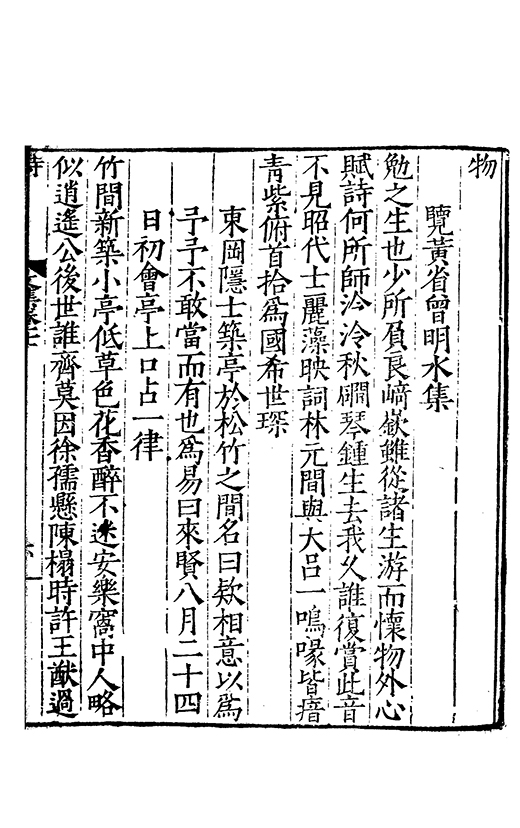 物
覽黃省曾明水集
勉之生也少所負良﨑嶔雖從諸生游而懷物外心
賦詩何所師泠泠秋磵琴鍾生去我乆誰復賞此音
不見昭代士麗藻映詞林元間與大吕一鳴喙皆瘖
青紫俯首拾爲國希世琛
東岡隱士築亭於松竹之間名曰欵相意以爲
予予不敢當而有也爲易曰來賢八月二十四
日初會亭上口占一律
竹間新築小亭低草色花香醉不迷安樂窩中人略
似逍遙公後世誰齊莫因徐孺懸陳榻時許王猷過